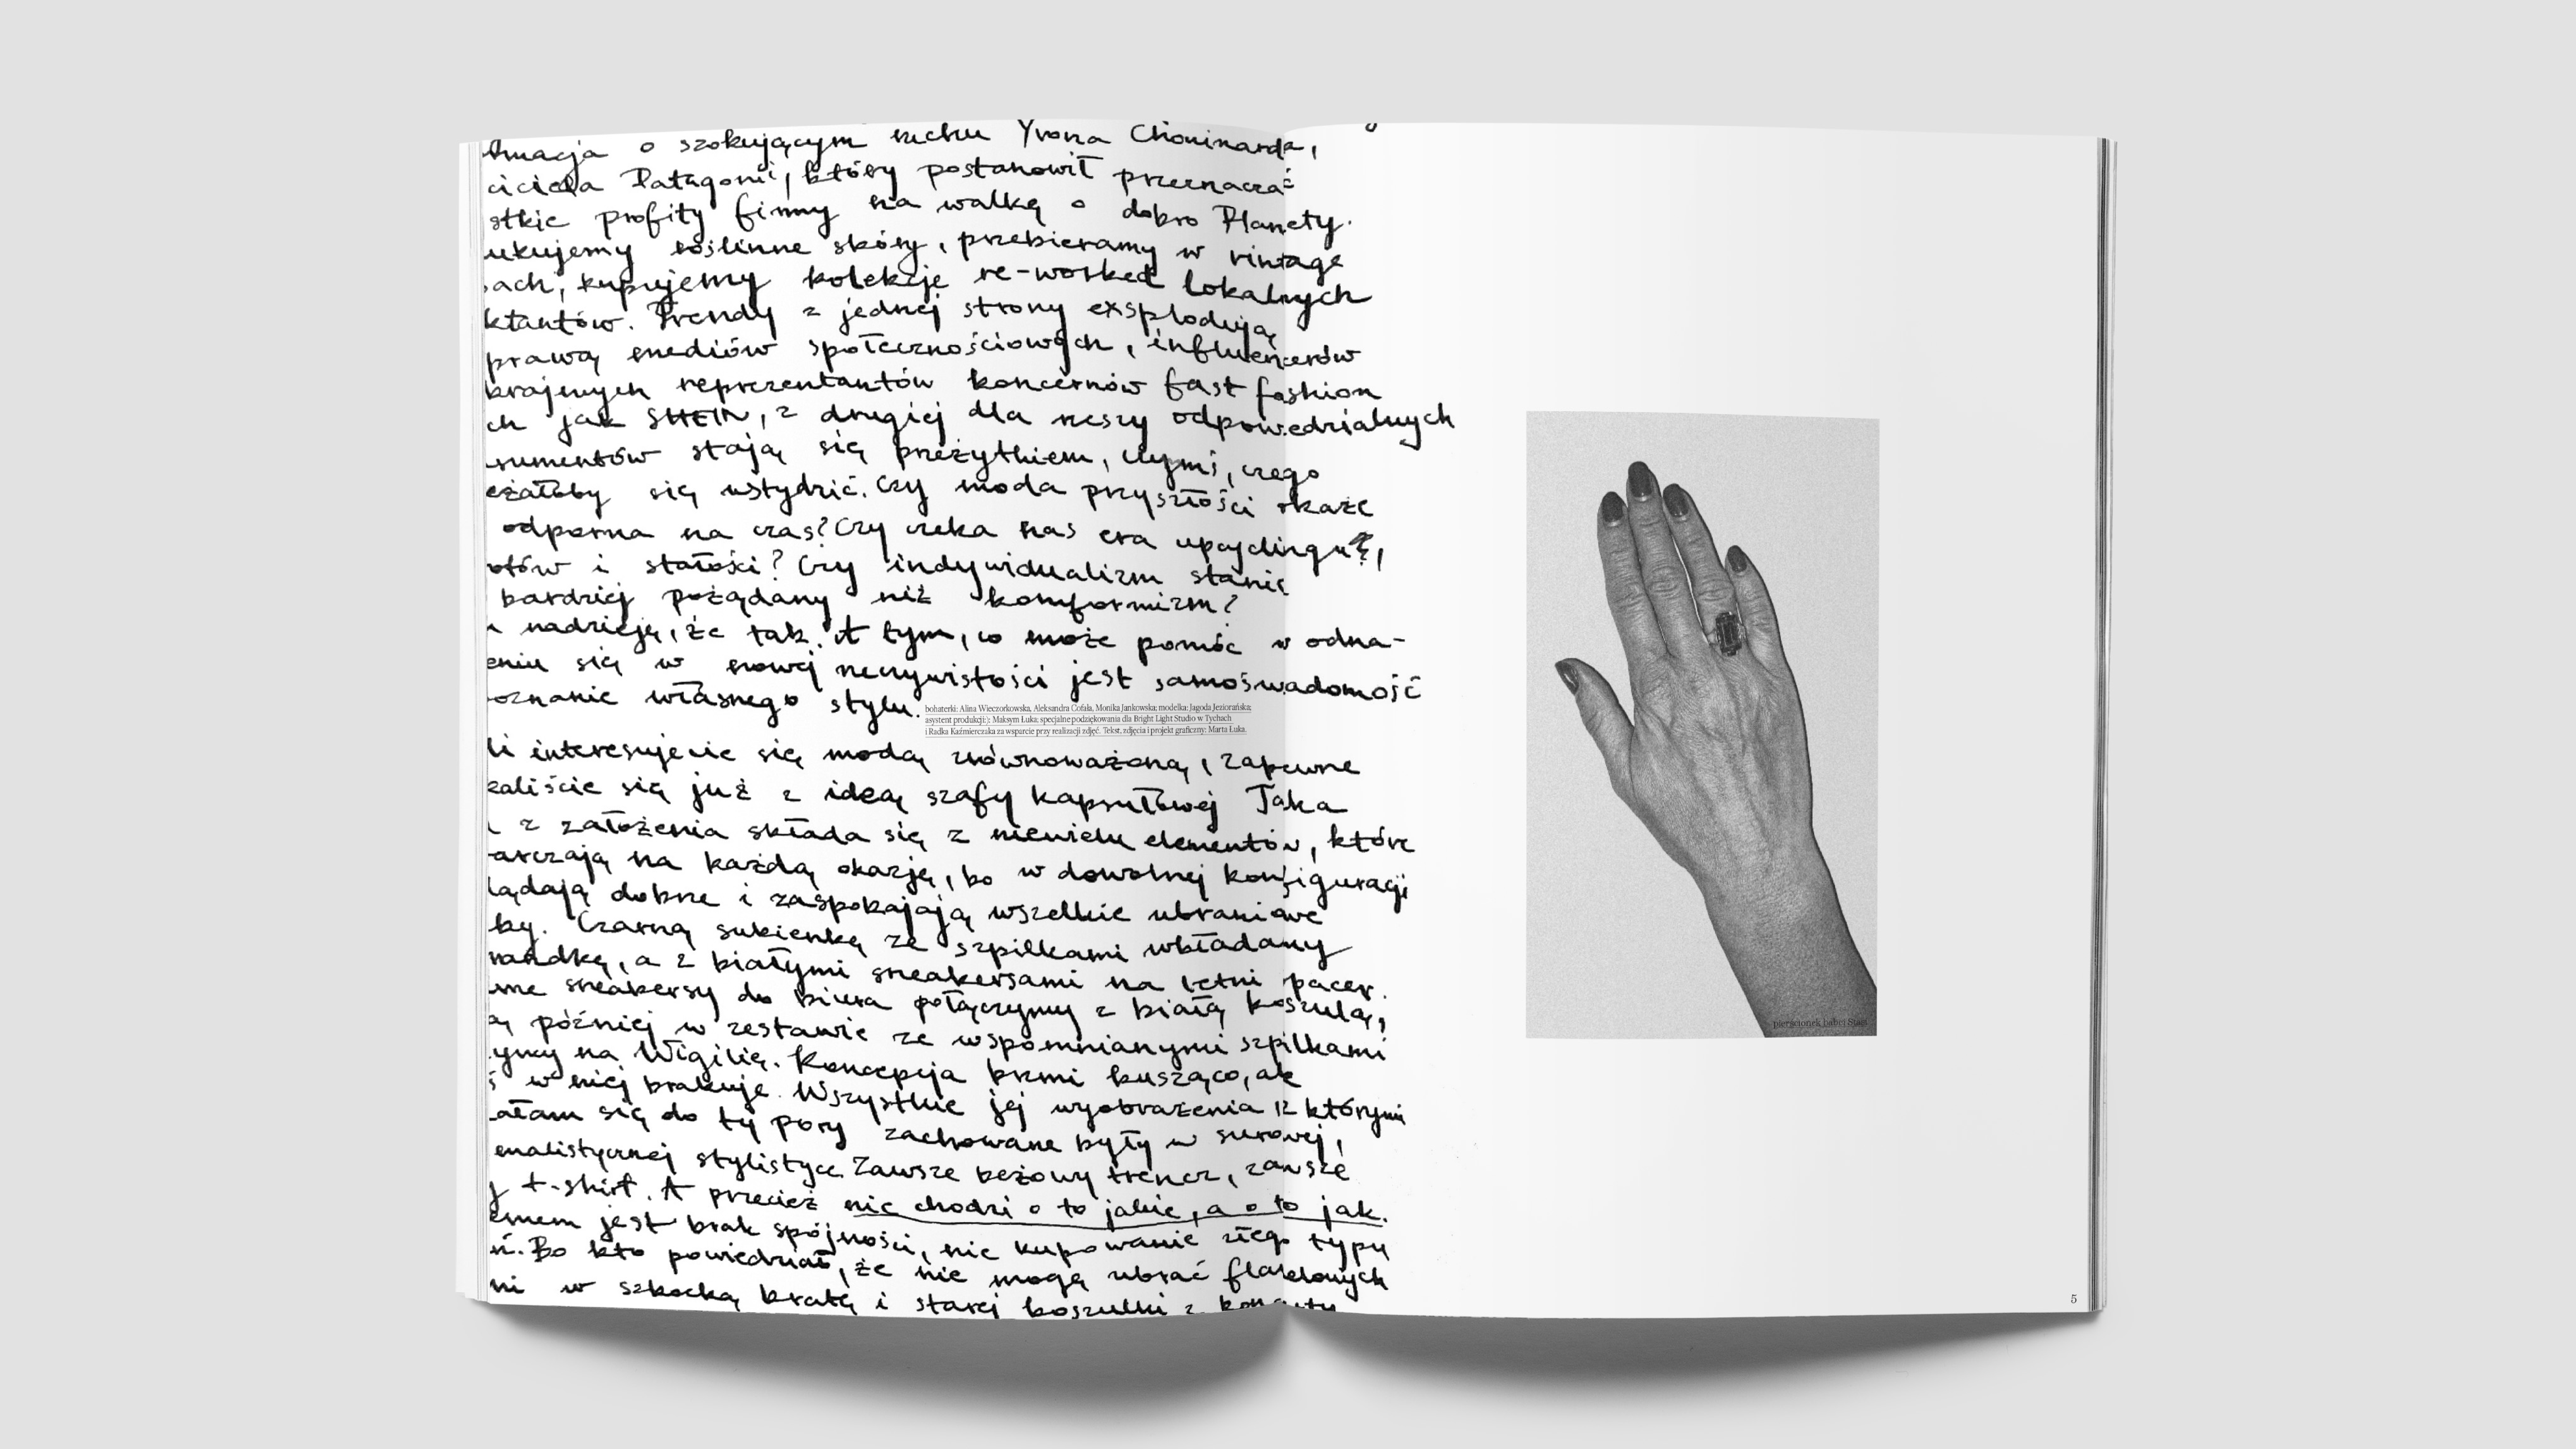 o szokującym ruchu Yvona Chouinarda,
ciciela Patagonii, który postanowił przeznaczać
stkie profity firmy na walkę o dobro Planety.
ukujemy roślinne skóry, przebieramy w vintage
ach, kupujemy kolekcje re-worked lokalnych
ktantów. Trendy z jednej strony eksplodują
prawą mediów społecznościowych, influencerów
krajowych reprezentantów koncernów fast fashion
ch jak SHEIN, z drugiej dla rzeszy odpowiedzialnych
sumentów stają się przeżytkiem, czymś, czego
eżałoby się wstydzić. Czy moda przyszłości okaże
odporna na czas? Czy czeka nas era upcyclingu,
otów i stałości? Czy indywidualizm stanie
bardziej pożądany niż komformizm?
nadzieję, że tak. A tym, co może pomóc w odna-
eniu się w nowej rzeczywistości jest samoświadomość
oznanie własnego stylu.
bohaterki: Alina Wieczorkowska, Aleksandra Cofała, Monika Jankowska; modelka: Jagoda Jeziorańska;
asystent produkcji:): Maksym Łuka; specjalne podziękowania dla Bright Light Studio w Tychach
i Radka Kaźmierczaka za wsparcie przy realizacji zdjęć. Tekst, zdjęcia i projekt graficzny: Marta Łuka.
li interesujecie się modą zrównoważoną, zapewne
kaliście się już z ideą szafy kapsułowej Taka
z założenia składa się z niewielu elementów, które
arczają na każdą okazję, bo w dowolnej konfiguracji
lądają dobrze i zaspokajają wszelkie ubraniowe
by. Czarną sukienkę ze szpilkami wkładamy
randkę, a z białymi sneakersami na letni pacer.
me sneakersy do biura połączymy z białą koszulą,
ą później w zestawie ze wspomnianymi szpilkami
ymy na Wigilię. Koncepcja brzmi kusząco, ale
ś w niej brakuje. Wszystkie jej wyobrażenia z którymi
ałam się do tej pory zachowane były w surowej,
imalistycznej stylistyce Zawsze beżowy trencz, zawsze
y t-shirt. A przecież nie chodzi o to jakie, a o to jak.
emem jest brak spójności, nie kupowanie złego typu
ń. Bo kto powiedział, że nie mogą ubrać flanelowych
ni w szkocką kratę i starej koszulki z
pierścionek babci Stasi
5